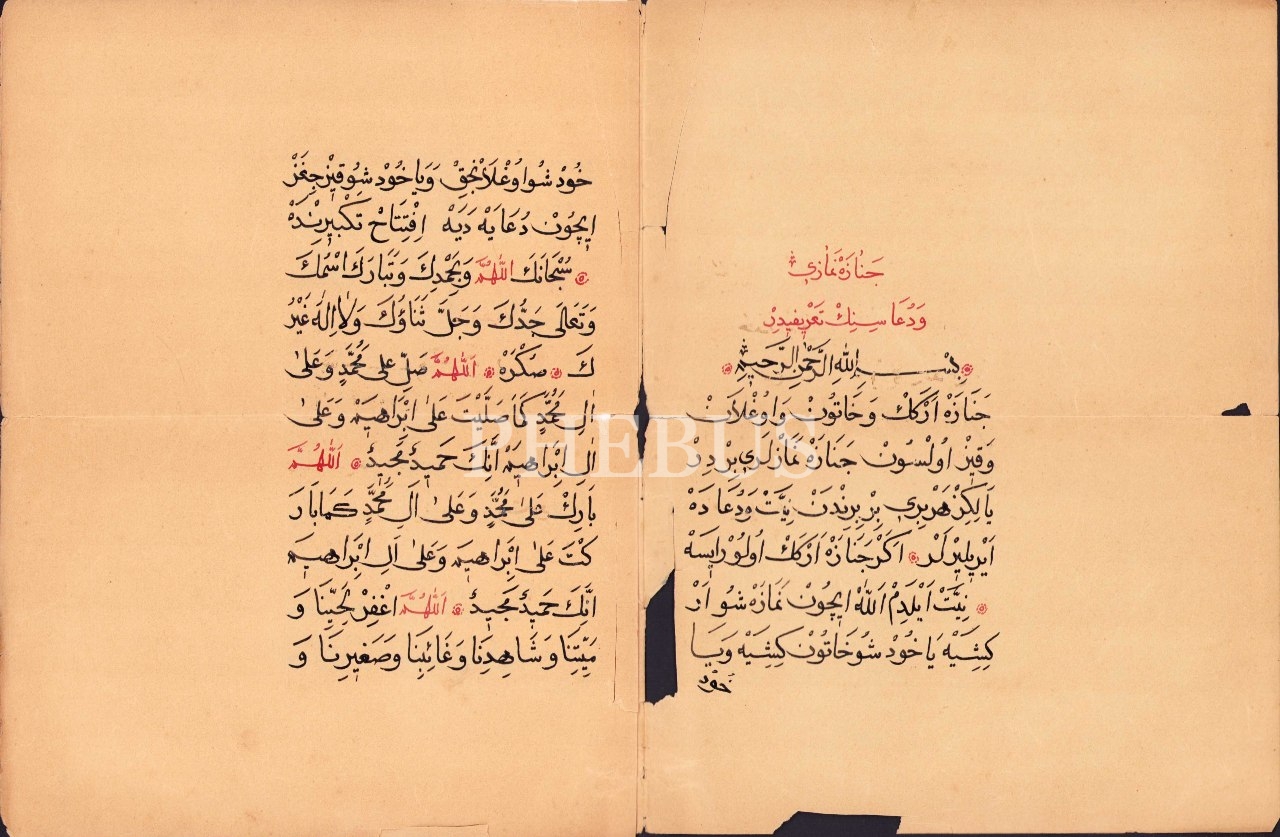 جَنَازَهْ نَمَازِي
وَدُعَا سِنِكْ تَعْرِيفِيدِرْ
بِسْــمِ اللهِ الرَّحْمٰنِ الرَّحِيمِ
جَنَازَهْ اَرْكَكْ وَخَاتُونْ وَاوُغْلَانْ
وَقِيزْ اوُلْسُونْ جَنَازَهْ نَمَازْلَرِي بِرْدِرْ
يَالِكِزْ هَرْبِرِي بِرْبِرِنْدَنْ نِيَّتْ وَدُعَادَهْ
اَيْرِيلِيرْلَرْ اَكَرْ جَنَازَهْ اَرْكَكْ اوُلُورْايسَهْ
نِيَّتْ اَيْلَدِمْ اَللهْ ايچُونْ نَمَازَهْ شُو اَرْ
كِشِيَهْ يَاخُودْ شُوخَاتُونْ كِشِيَهْ وَيَا
خود
خُودْ شُواوُغْلَانْجِقْ وَيَاخُودْ شِوُقِيزْجِغَزْ
ايچُونْ دُعَايَهْ دَيَهْ اِفْتِتَاحْ تَكْبِيرِنْدَهْ
سُبْحَانَكَ اللّٰهُمَّ وَبِحَمْدِكَ وَتَبَارَكَ اسْمُكَ
وَتَعَالَى جَدُّكَ وَجَلَّ ثَنَاؤُكَ وَلَااِلٰهَ غَيْرُ
كَ صُكْرَهْ اَللّٰهُمَّ صَلِّ عَلٰى مُحَمَّدٍ وَعَلٰى
اٰلِ مُحَمَّدٍ كَمَا صَلَّيْتَ عَلٰى اِبْرَاهِيمَ وَعَلٰى
اٰلِ اِبْرَاهِيمَ اِنَّكَ حَمِيدٌ مَجِيدٌ اَللّٰهُمَّ
بَارِكْ عَلٰى مُحَمَّدٍ وَعَلٰى اٰلِ مُحَمَّدٍ كَمَابَارَ
كْتَ عَلٰى اِبْرَاهِيمَ وَعَلٰى اٰلِ اِبْرَاهِيمَ
اِنَّكَ حَمِيدٌ مَجِيدٌ اَللّٰهُمَّ اغْفِرْ لِحَيِّنَا وَ
مَيِّتِنَا وَشَاهِدِنَا وَغَائِبِنَا وَصَغِيرِنَا وَ
PHEBUS